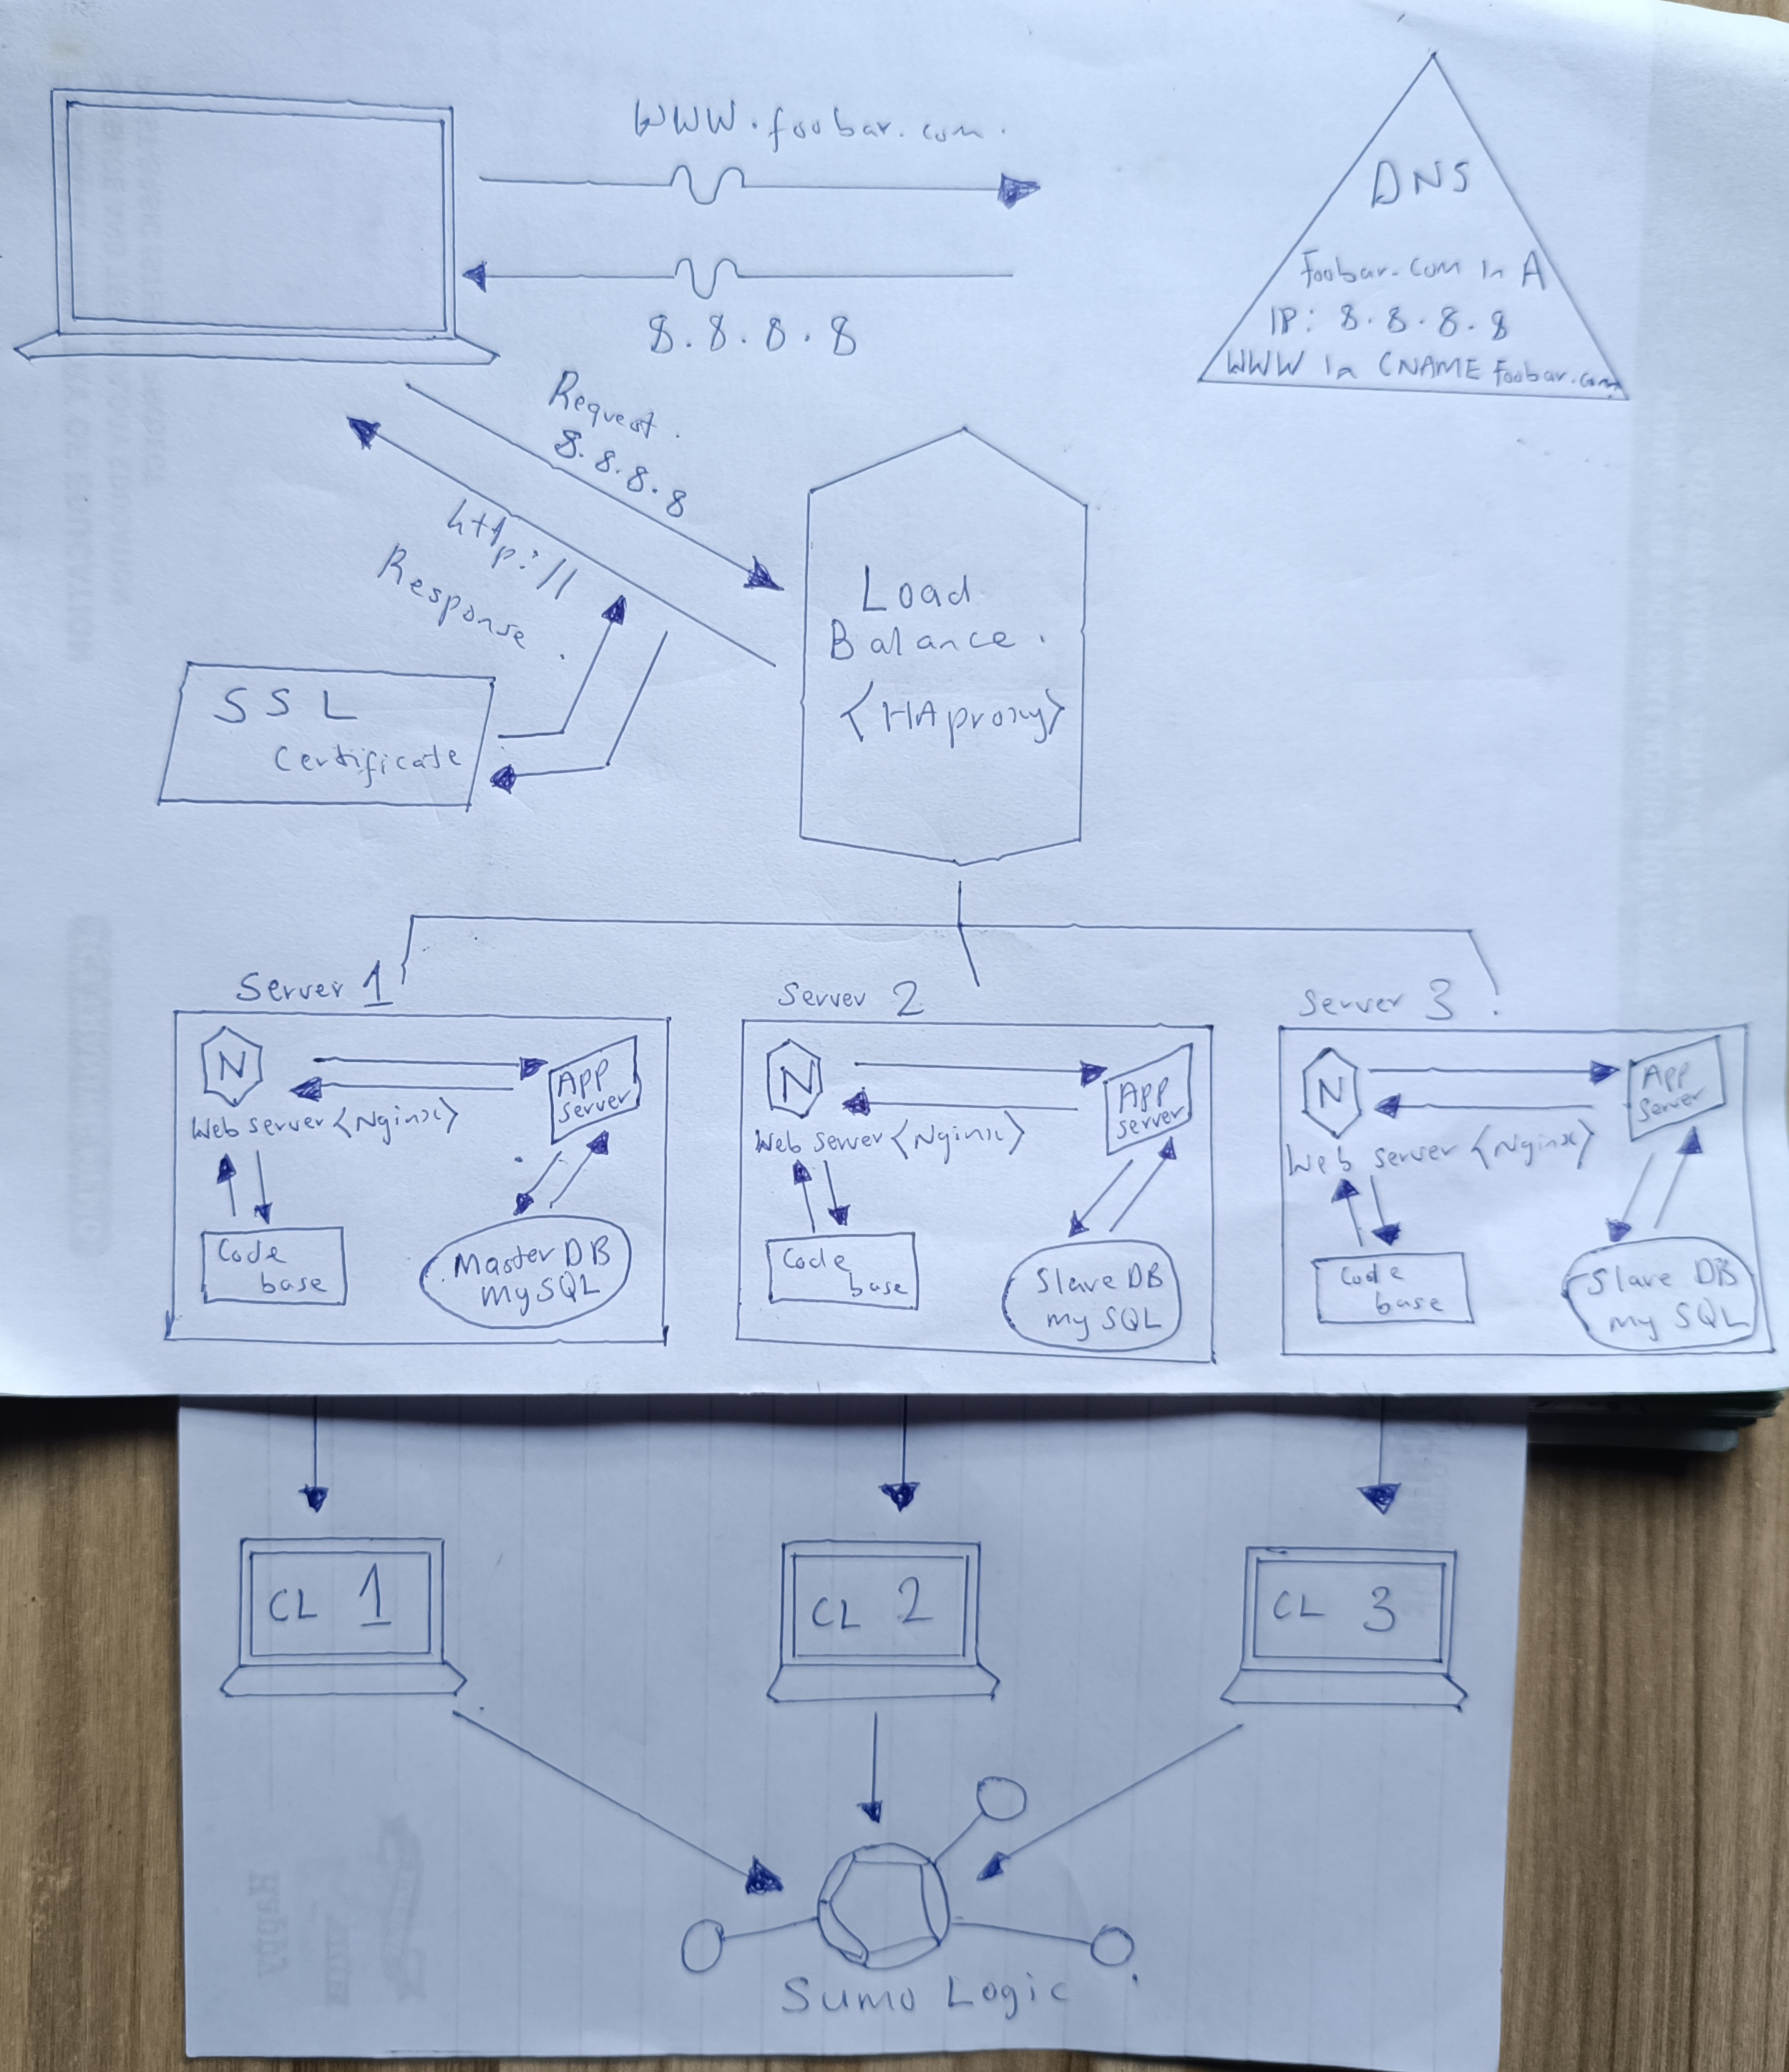 WWW.foobar.com.
8.8.8.8
DNS
Foobar.com in A
IP: 8.8.8.8
WWW in CNAME foobar.com
Request.
8.8.8.8
http://
Response.
SSL
Certificate
Load
Balance.
<HAproxy>
Server 1
N
App
Server
Web server <Nginx>
Code
base
Master DB
mySQL
Server 2
N
App
Server
Web server <Nginx>
Code
base
Slave DB
my SQL
Server 3
N
App
Server
Web server <Nginx>
Code
base
Slave DB
my SQL
CL 1
CL 2
CL 3
Sumo Logic